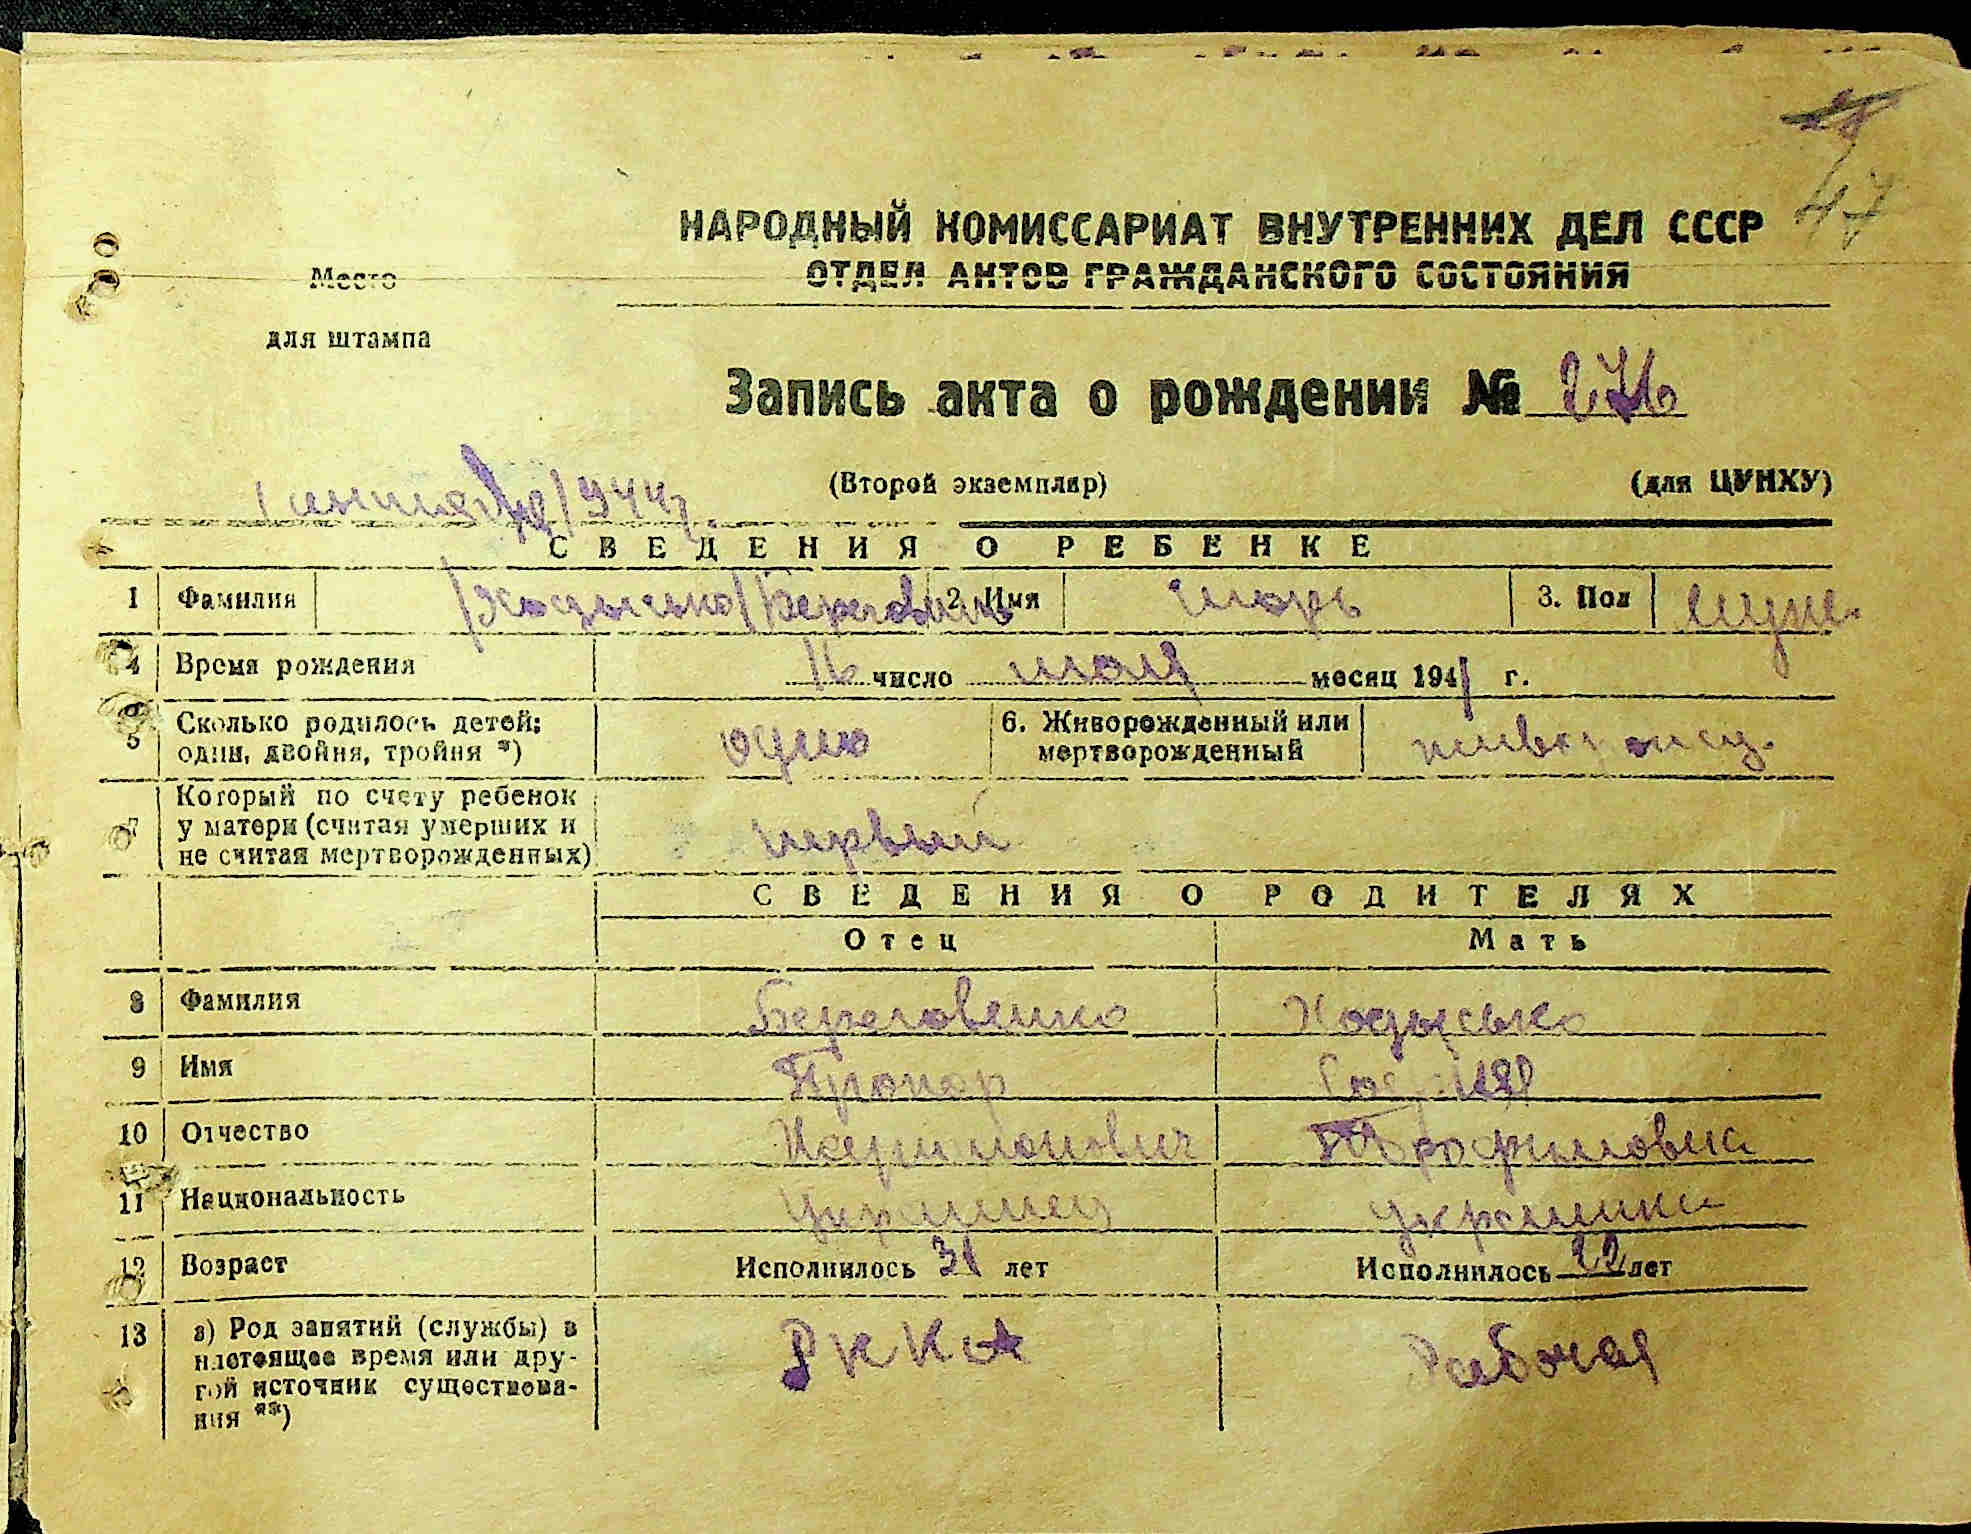 47
НАРОДНЫЙ КОМИССАРИАТ ВНУТРЕННИХ ДЕЛ СССР
ОТДЕЛ АКТОВ ГРАЖДАНСКОГО СОСТОЯНИЯ
Место
для штампа
Запись акта о рождении № 276
(Второй экземпляр) (для ЦУНХУ)
1 сентября 1944 г.
СВЕДЕНИЯ О РЕБЕНКЕ
1 Фамилия 2. Имя Игорь 3. Пол муж.
4 Время рождения 16 число мая месяц 1941 г.
5 Сколько родилось детей: один, двойня, тройня *) одно 6. Живорожденный или мертворожденный живорожд.
7 Который по счету ребенок у матери (считая умерших и не считая мертворожденных) первый
СВЕДЕНИЯ О РОДИТЕЛЯХ
Отец Мать
8 Фамилия Береговенко Ходысько
9 Имя Прокор
10 Отчество Трофимовна
11 Национальность Украинец Украинка
12 Возраст Исполнилось 31 лет Исполнилось 22 лет
13 а) Род занятий (службы) в настоящее время или другой источник существования **) РККА Рабочая